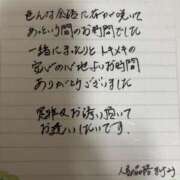 色んな会話に花が咲いて
あっという間のお時間でした
一緒にまったりとトキメキの
安心の心地よいお時間
ありがとうございました
是非又お誘い頂いて
お逢いしたいです
人妻品格